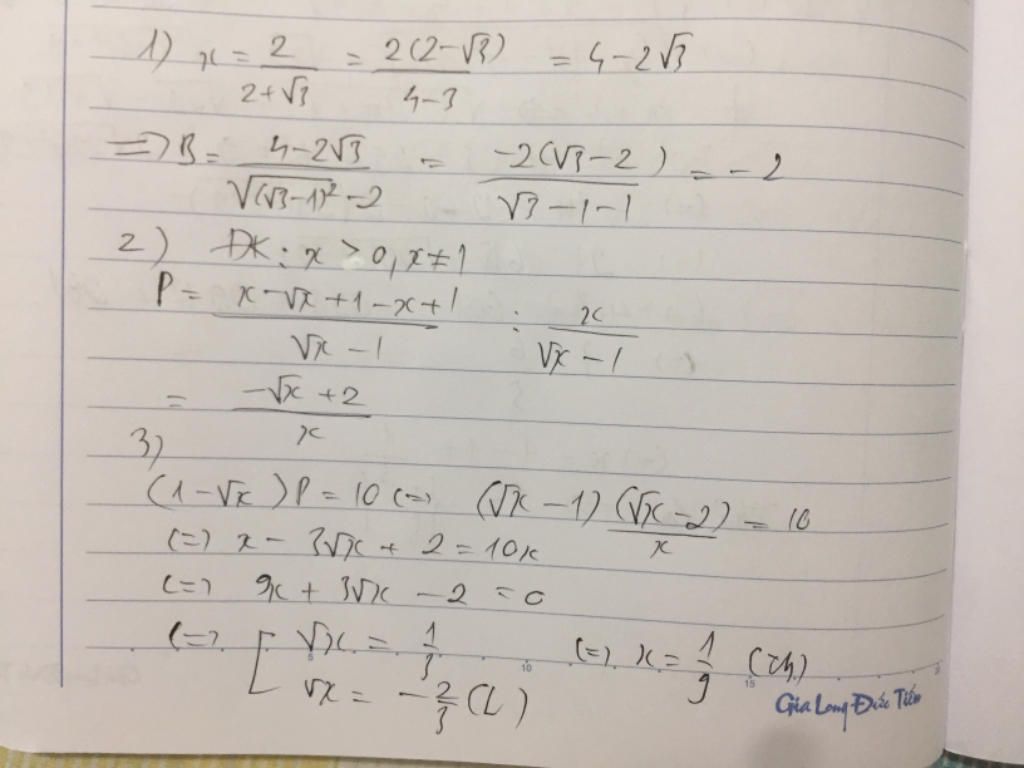 1) x = 2/(2+√3) = 2(2-√3)/(4-3) = 4-2√3
=> B = (4-2√3)/(√(√3-1)² -2) = -2(√3-2)/(√3-1-1) = -2
2) ĐK: x > 0, x ≠ 1
P = (x-√x+1-x+1)/(√x-1) : x/(√x-1)
= (-√x+2)/x
3)
(1-√x)P = 10 (=) (√x-1)(√x-2)/x = 10
(=) x - 3√x + 2 = 10x
(=) 9x + 3√x - 2 = 0
(=) [ √x = 1/3 (=) x = 1/9 (TM)
√x = -2/3 (L)
5 10 15
Gia Long Đức Tiến